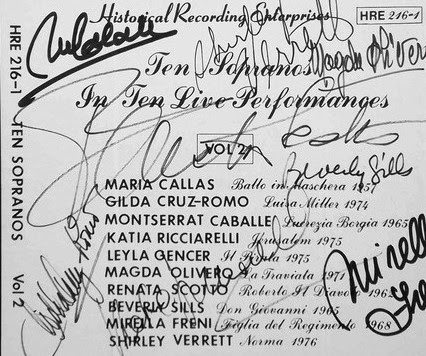 Historical Recording Enterprises
HRE 216-1
Ten Sopranos
In Ten Live Performances
VOL 2
MARIA CALLAS Ballo in Maschera 1957
GILDA CRUZ-ROMO Luisa Miller 1974
MONTSERRAT CABALLE Lucrezia Borgia 1965
KATIA RICCIARELLI Jerusalem 1975
LEYLA GENCER Il Pirata 1975
MAGDA OLIVERO La Traviata 1971
RENATA SCOTTO Roberto Il Diavolo 1962
BEVERLY SILLS Don Giovanni 1965
MIRELLA FRENI Figlia del Regimento 1968
SHIRLEY VERRETT Norma 1976
HRE 216-1 TEN SOPRANOS Vol 2
Shirley Verrett
Magda Olivero
Scotto
Beverly Sills
Mirella
Freni